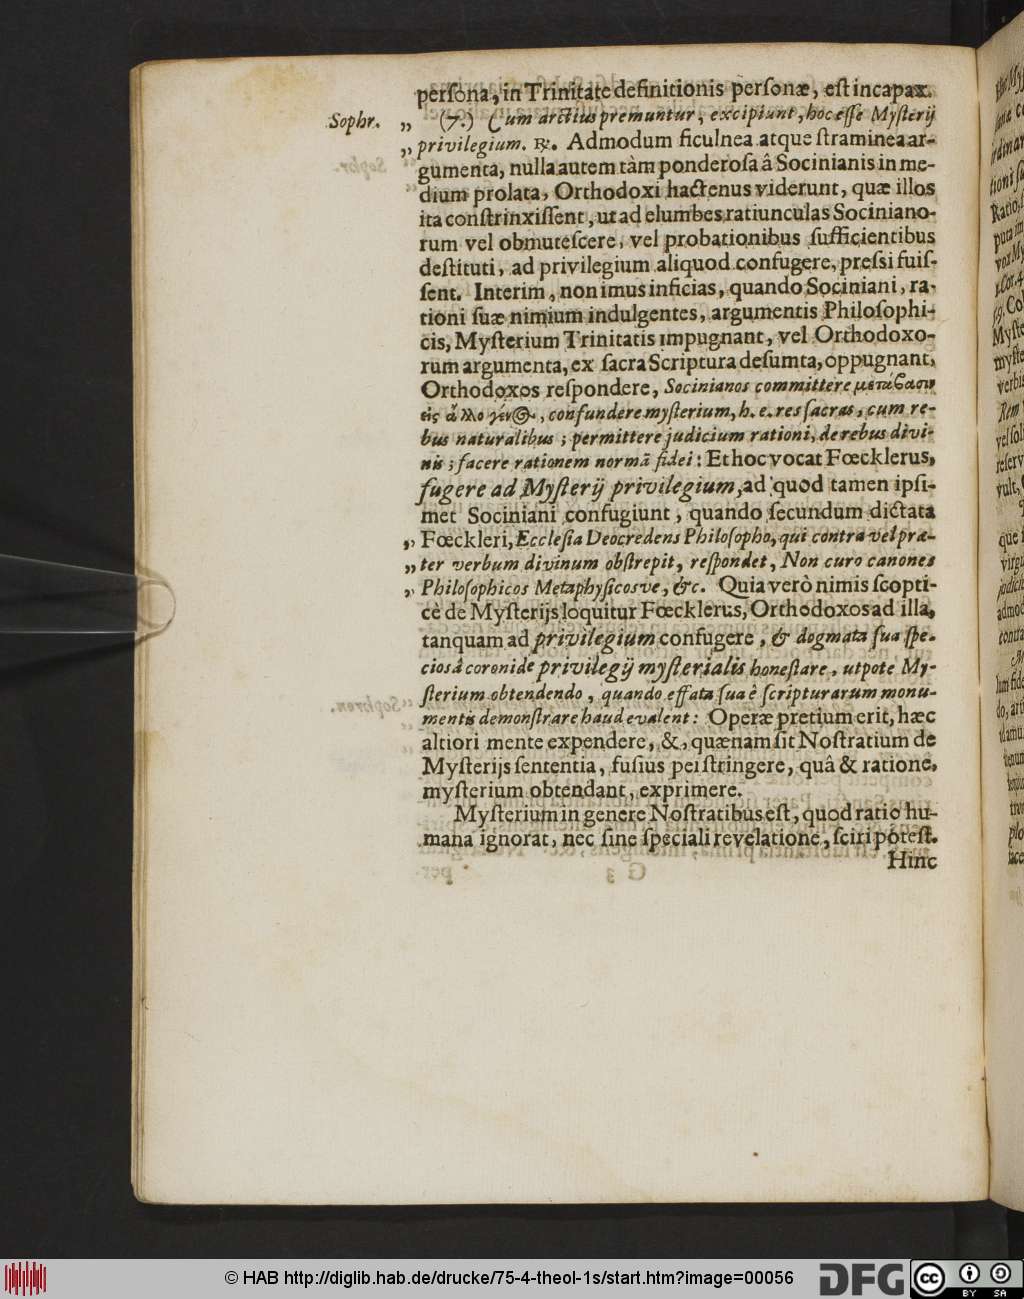 perſona, in Trinitate definitionis perſonæ, eſt incapax.
Sophr. „ (7.) Cum arctius premuntur, excipiunt, hoc eſſe Myſterij
„ privilegium. ℞. Admodum ficulnea atque ſtraminea ar-
gumenta, nulla autem tàm ponderoſa â Socinianis in me-
dium prolata, Orthodoxi hactenus viderunt, quæ illos
ita conſtrinxiſſent, ut ad elumbes ratiunculas Sociniano-
rum vel obmuteſcere, vel probationibus ſufficientibus
deſtituti, ad privilegium aliquod confugere, preſsi fuiſ-
ſent. Interim, non imus inficias, quando Sociniani, ra-
tioni ſuæ nimium indulgentes, argumentis Philoſophi-
cis, Myſterium Trinitatis impugnant, vel Orthodoxo-
rum argumenta, ex ſacra Scriptura deſumta, oppugnant,
Orthodoxos reſpondere, Socinianos committere μετάβασιν
εἰς ἄλλο γένος, confundere myſterium, h. e. res ſacras, cum re-
bus naturalibus; permittere judicium rationi, de rebus divi-
nis; facere rationem normã fidei: Et hoc vocat Fœcklerus,
fugere ad Myſterij privilegium, ad quod tamen ipſi-
met Sociniani confugiunt, quando ſecundum dictata
„ Fœckleri, Eccleſia Deo credens Philoſopho, qui contra vel præ-
„ ter verbum divinum obſtrepit, reſpondet, Non curo canones
„ Philoſophicos Metaphyſicosve, &c. Quia verò nimis ſcopti-
cè de Myſterijs loquitur Fœcklerus, Orthodoxos ad illa,
tanquam ad privilegium confugere, & dogmata ſua ſpe-
cioſâ coronide privilegij myſterialis honeſtare, utpote My-
ſterium obtendendo, quando effata ſua è ſcripturarum monu-
mentis demonſtrare haud evalent: Operæ pretium erit, hæc
altiori mente expendere, &, quænam ſit Noſtratium de
Myſterijs ſententia, fuſius perſtringere, quâ & ratione,
myſterium obtendant, exprimere.
Myſterium in genere Noſtratibus eſt, quod ratio hu-
mana ignorat, nec ſine ſpeciali revelatione, ſciri poteſt.
Hinc
© HAB http://diglib.hab.de/drucke/75-4-theol-1s/start.htm?image=00056
DFG
cc
BY SA